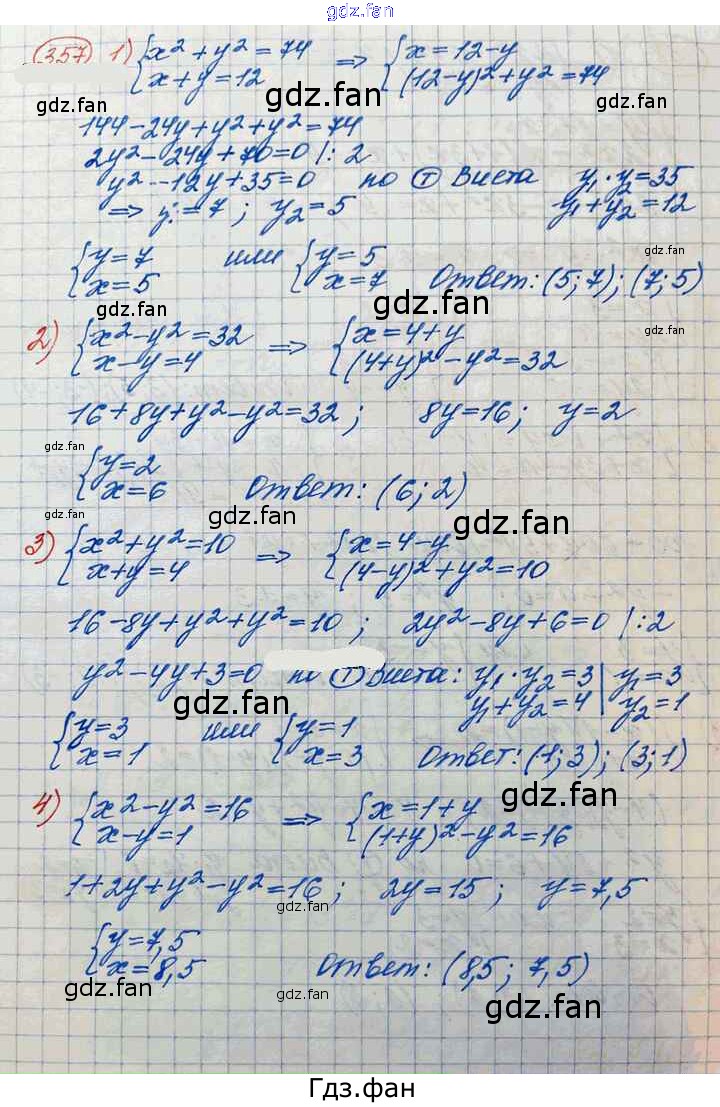 gdz.fan
357) 1) {x² + y² = 74 ⇒ {x = 12 - y
{x + y = 12 {(12-y)² + y² = 74
gdz.fan gdz.fan gdz.fan
144 - 24y + y² + y² = 74
2y² - 24y + 70 = 0 /: 2
y² - 12y + 35 = 0 по Ⓣ Виета y₁ · y₂ = 35
⇒ y₁ = 7 ; y₂ = 5 y₁ + y₂ = 12
gdz.fan
{y = 7 или {y = 5
{x = 5 {x = 7 Ответ: (5; 7); (7; 5)
gdz.fan gdz.fan gdz.fan
2) {x² - y² = 32 ⇒ {x = 4 + y
{x - y = 4 {(4+y)² - y² = 32
16 + 8y + y² - y² = 32 ; 8y = 16 ; y = 2
gdz.fan
{y = 2
{x = 6 Ответ: (6; 2)
gdz.fan gdz.fan gdz.fan
3) {x² + y² = 10 ⇒ {x = 4 - y
{x + y = 4 {(4-y)² + y² = 10
16 - 8y + y² + y² = 10 ; 2y² - 8y + 6 = 0 /: 2
gdz.fan
y² - 4y + 3 = 0 по Ⓣ Виета: y₁ · y₂ = 3 | y₁ = 3
y₁ + y₂ = 4 | y₂ = 1
gdz.fan gdz.fan
{y = 3 или {y = 1
{x = 1 {x = 3 Ответ: (1; 3); (3; 1)
gdz.fan
4) {x² - y² = 16 ⇒ {x = 1 + y
{x - y = 1 {(1+y)² - y² = 16
1 + 2y + y² - y² = 16 ; 2y = 15 ; y = 7,5
gdz.fan
{y = 7,5
{x = 8,5 Ответ: (8,5 ; 7,5)
gdz.fan gdz.fan gdz.fan
Гдз.фан